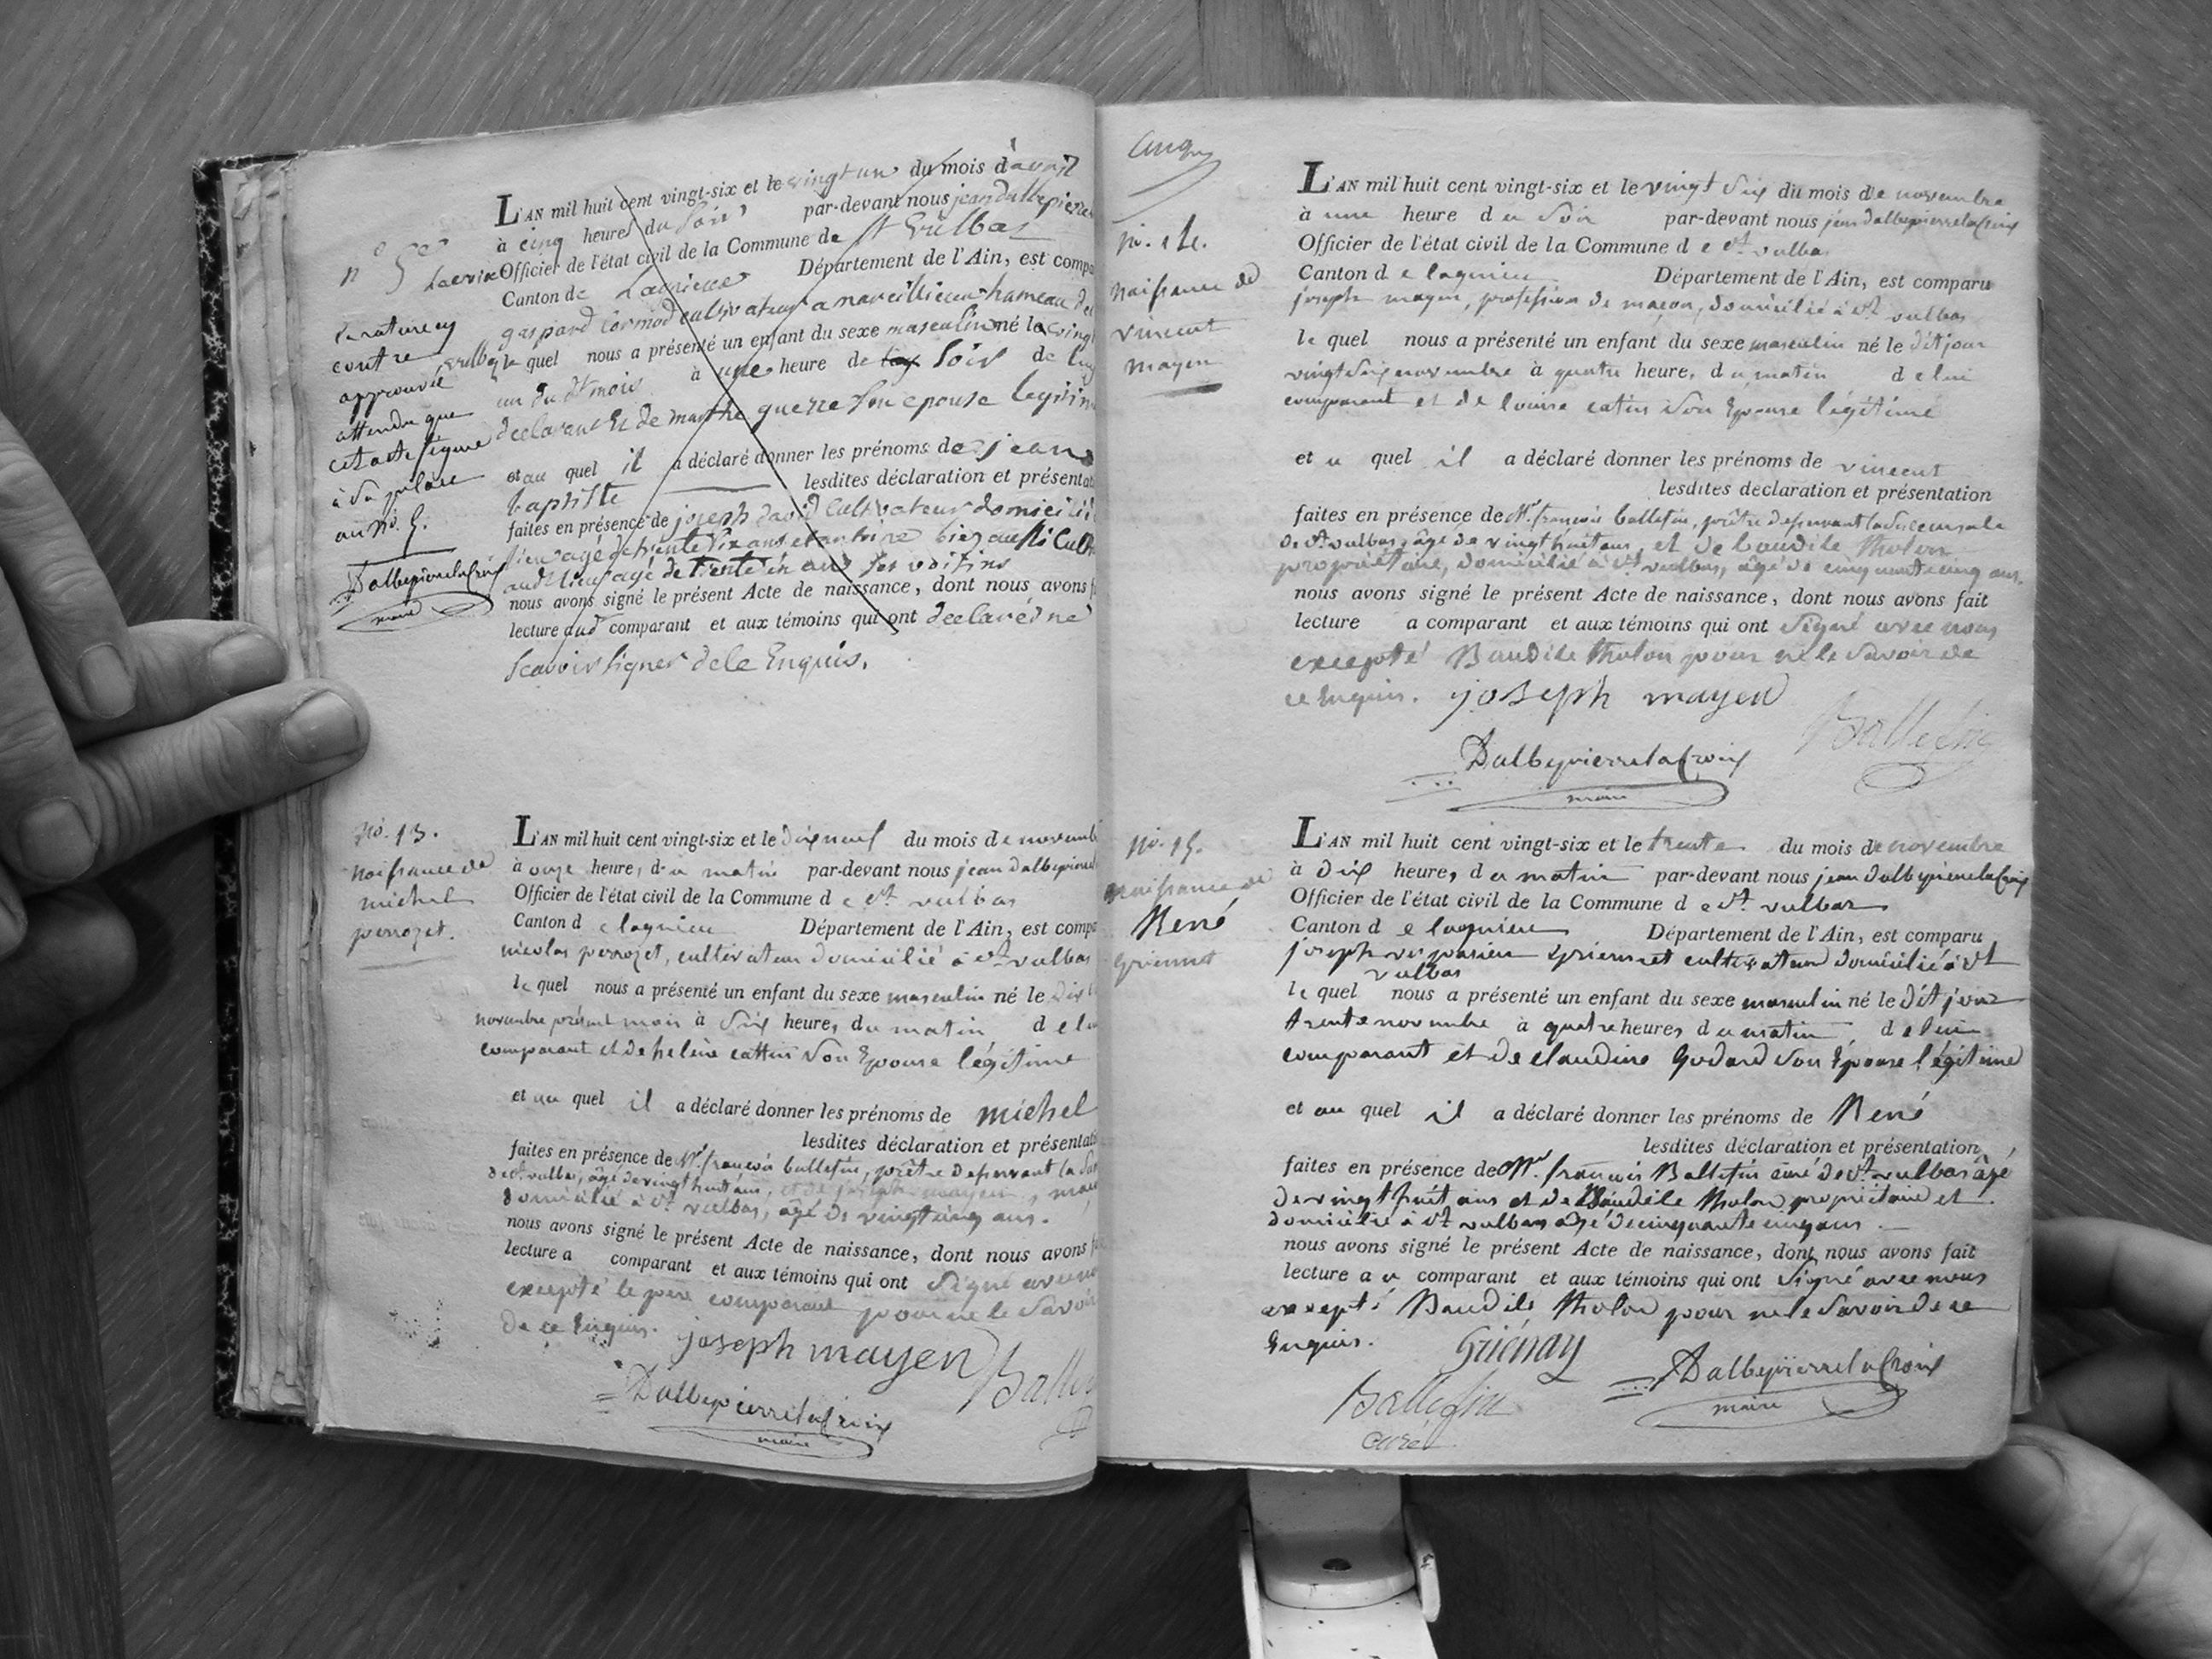 n° 5e
Lacroix
L'AN mil huit cent vingt-six et le vingt un du mois d'avril
à cinq heures du soir par-devant nous jean dalbepierre
Officier de l'état civil de la Commune de st Vulbas
Canton de Lagnieux Département de l'Ain, est compa
gaspard Cormod cultivateur a marcillieux hameau de
vulbas le quel nous a présenté un enfant du sexe masculin né le vingt
un du dt mois à une heure de soir de luy
declarant Et de marthe guerre son epouse legitim
et au quel il a déclaré donner les prénoms de jean
baptiste lesdites déclaration et présentat
faites en présence de joseph david Cultivateur domicilié
lieu agé de trente six ans et antoine aussi Cult
audt lieu agé de trente un ans ses voisins
nous avons signé le présent Acte de naissance, dont nous avons f
lecture aud comparant et aux témoins qui ont declaré ne
scavoir signer de ce Enquis.
la rature cy
contre
approuvée
attendu que
cet acte figure
à sa place
au no. 5.
DalbepierrelaCroix
maire
no. 13.
naissance de
michel
perrozet.
L'AN mil huit cent vingt-six et le dix neuf du mois de novemb
à onze heures du matin par-devant nous jean dalbepierrel
Officier de l'état civil de la Commune d e st. vulbas
Canton d e lagnieu Département de l'Ain, est compa
nicolas perrozet, cultivateur domicilié à st. vulbas
le quel nous a présenté un enfant du sexe masculin né le dix
novembre présent mois à six heures du matin de lui
comparant et de helene cattin son Epouse légitime
et au quel il a déclaré donner les prénoms de michel
lesdites déclaration et présentati
faites en présence de Mr. françois ballefin, prêtre desservant la su
de st. vulbas, âgé de vingt huit ans, et de joseph mayen, maco
domicilié à st. vulbas, âgé de vingt cinq ans.
nous avons signé le présent Acte de naissance, dont nous avons f
lecture a comparant et aux témoins qui ont signé avec no
excepté le pere comparant pour ne le savoir
de ce Enquis. joseph mayen
DalbepierrelaCroix
maire
Cinq
no. 14.
naissance de
vincent
mayen
L'AN mil huit cent vingt-six et le vingt six du mois de novembre
à une heure d u soir par-devant nous jean dalbepierrelaCroix
Officier de l'état civil de la Commune d e st. vulbas
Canton d e lagnieu Département de l'Ain, est comparu
joseph mayen, profession de maçon, domicilié à st. vulbas
le quel nous a présenté un enfant du sexe masculin né le dit jour
vingt six novembre à quatre heures du matin de lui
comparant et de louise catin son Epouse légitime
et u quel il a déclaré donner les prénoms de vincent
lesdites declaration et présentation
faites en présence de Mr. françois ballefin, prêtre desservant la succursale
de st. vulbas, âgé de vingt huit ans, et de baudile tholon
propriétaire, domicilié à st. vulbas, âgé de cinquante cinq ans.
nous avons signé le présent Acte de naissance, dont nous avons fait
lecture a comparant et aux témoins qui ont signé avec nous
excepté Baudile tholon pour ne le savoir de
ce Enquis. joseph mayen
Ballefin
DalbepierrelaCroix
maire
no. 15.
naissance de
René
griennet
L'AN mil huit cent vingt-six et le trente du mois de novembre
à dix heures du matin par-devant nous jean dalbepierrelaCroix
Officier de l'état civil de la Commune d e st. vulbas
Canton d e lagnieu Département de l'Ain, est comparu
joseph griennet cultivateur domicilié à st
vulbas
le quel nous a présenté un enfant du sexe masculin né le dit jour
trente novembre à quatre heures du matin de lui
comparant et de claudine Godard son Epouse légitime
et au quel il a déclaré donner les prénoms de René
lesdites déclaration et présentation
faites en présence de Mr. françois Ballefin curé de st. vulbas âgé
de vingt huit ans et de Baudile tholon propriétaire et
domicilié à st vulbas âgé de cinquante cinq ans.
nous avons signé le présent Acte de naissance, dont nous avons fait
lecture a u comparant et aux témoins qui ont signé avec nous
excepté Baudile tholon pour ne le savoir de ce
Enquis. Griénay
Ballefin
curé
DalbepierrelaCroix
maire